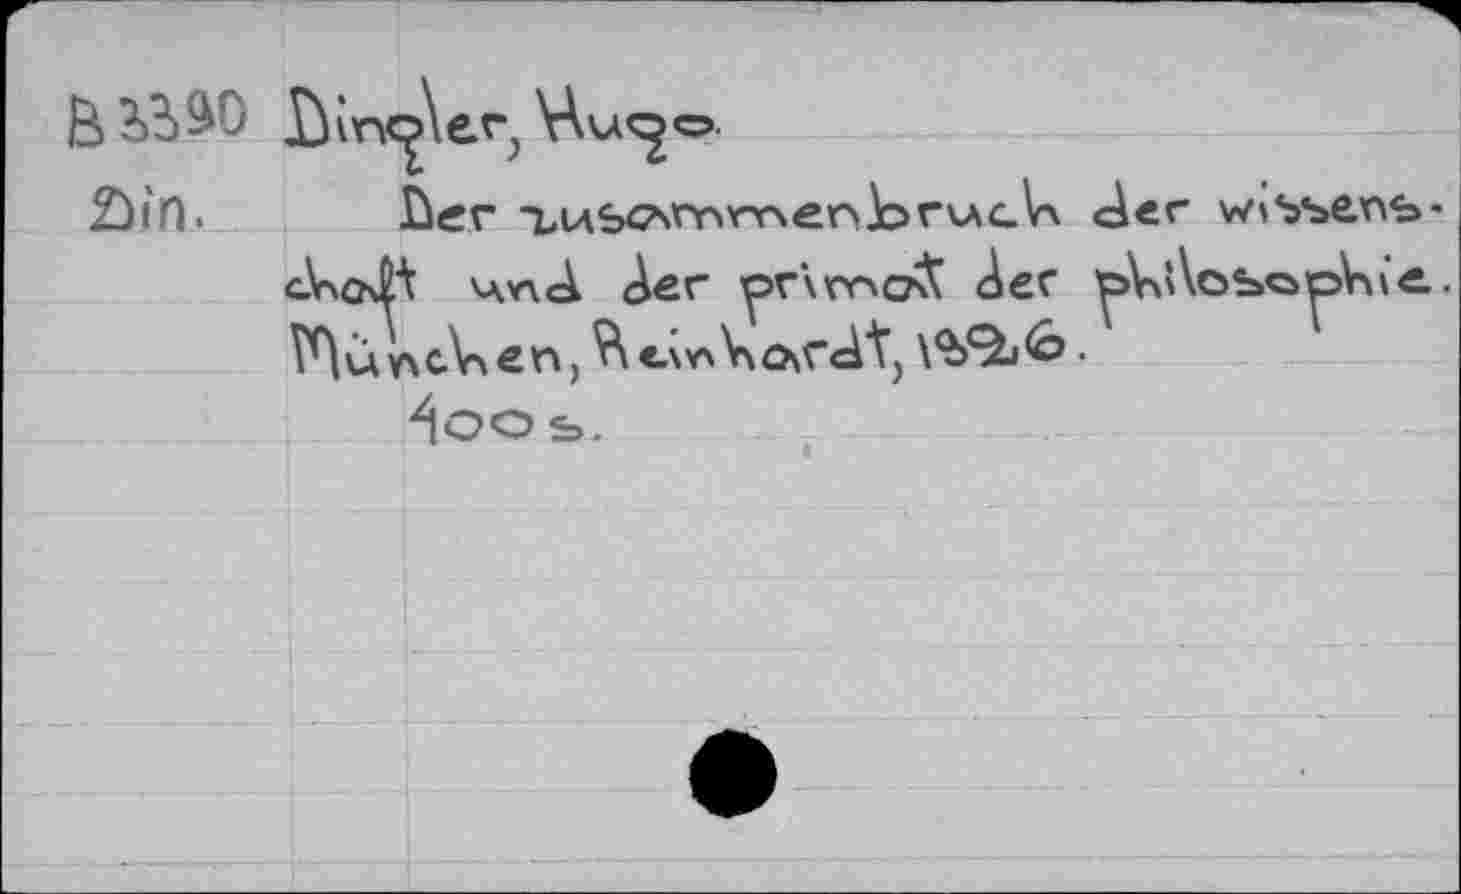 B3390 Dingler, Hugo.
Din. Der zusammenbruch der wissens-
chaft und der primat der philosophie.
München, Reinhardt, 1926.
400 s.